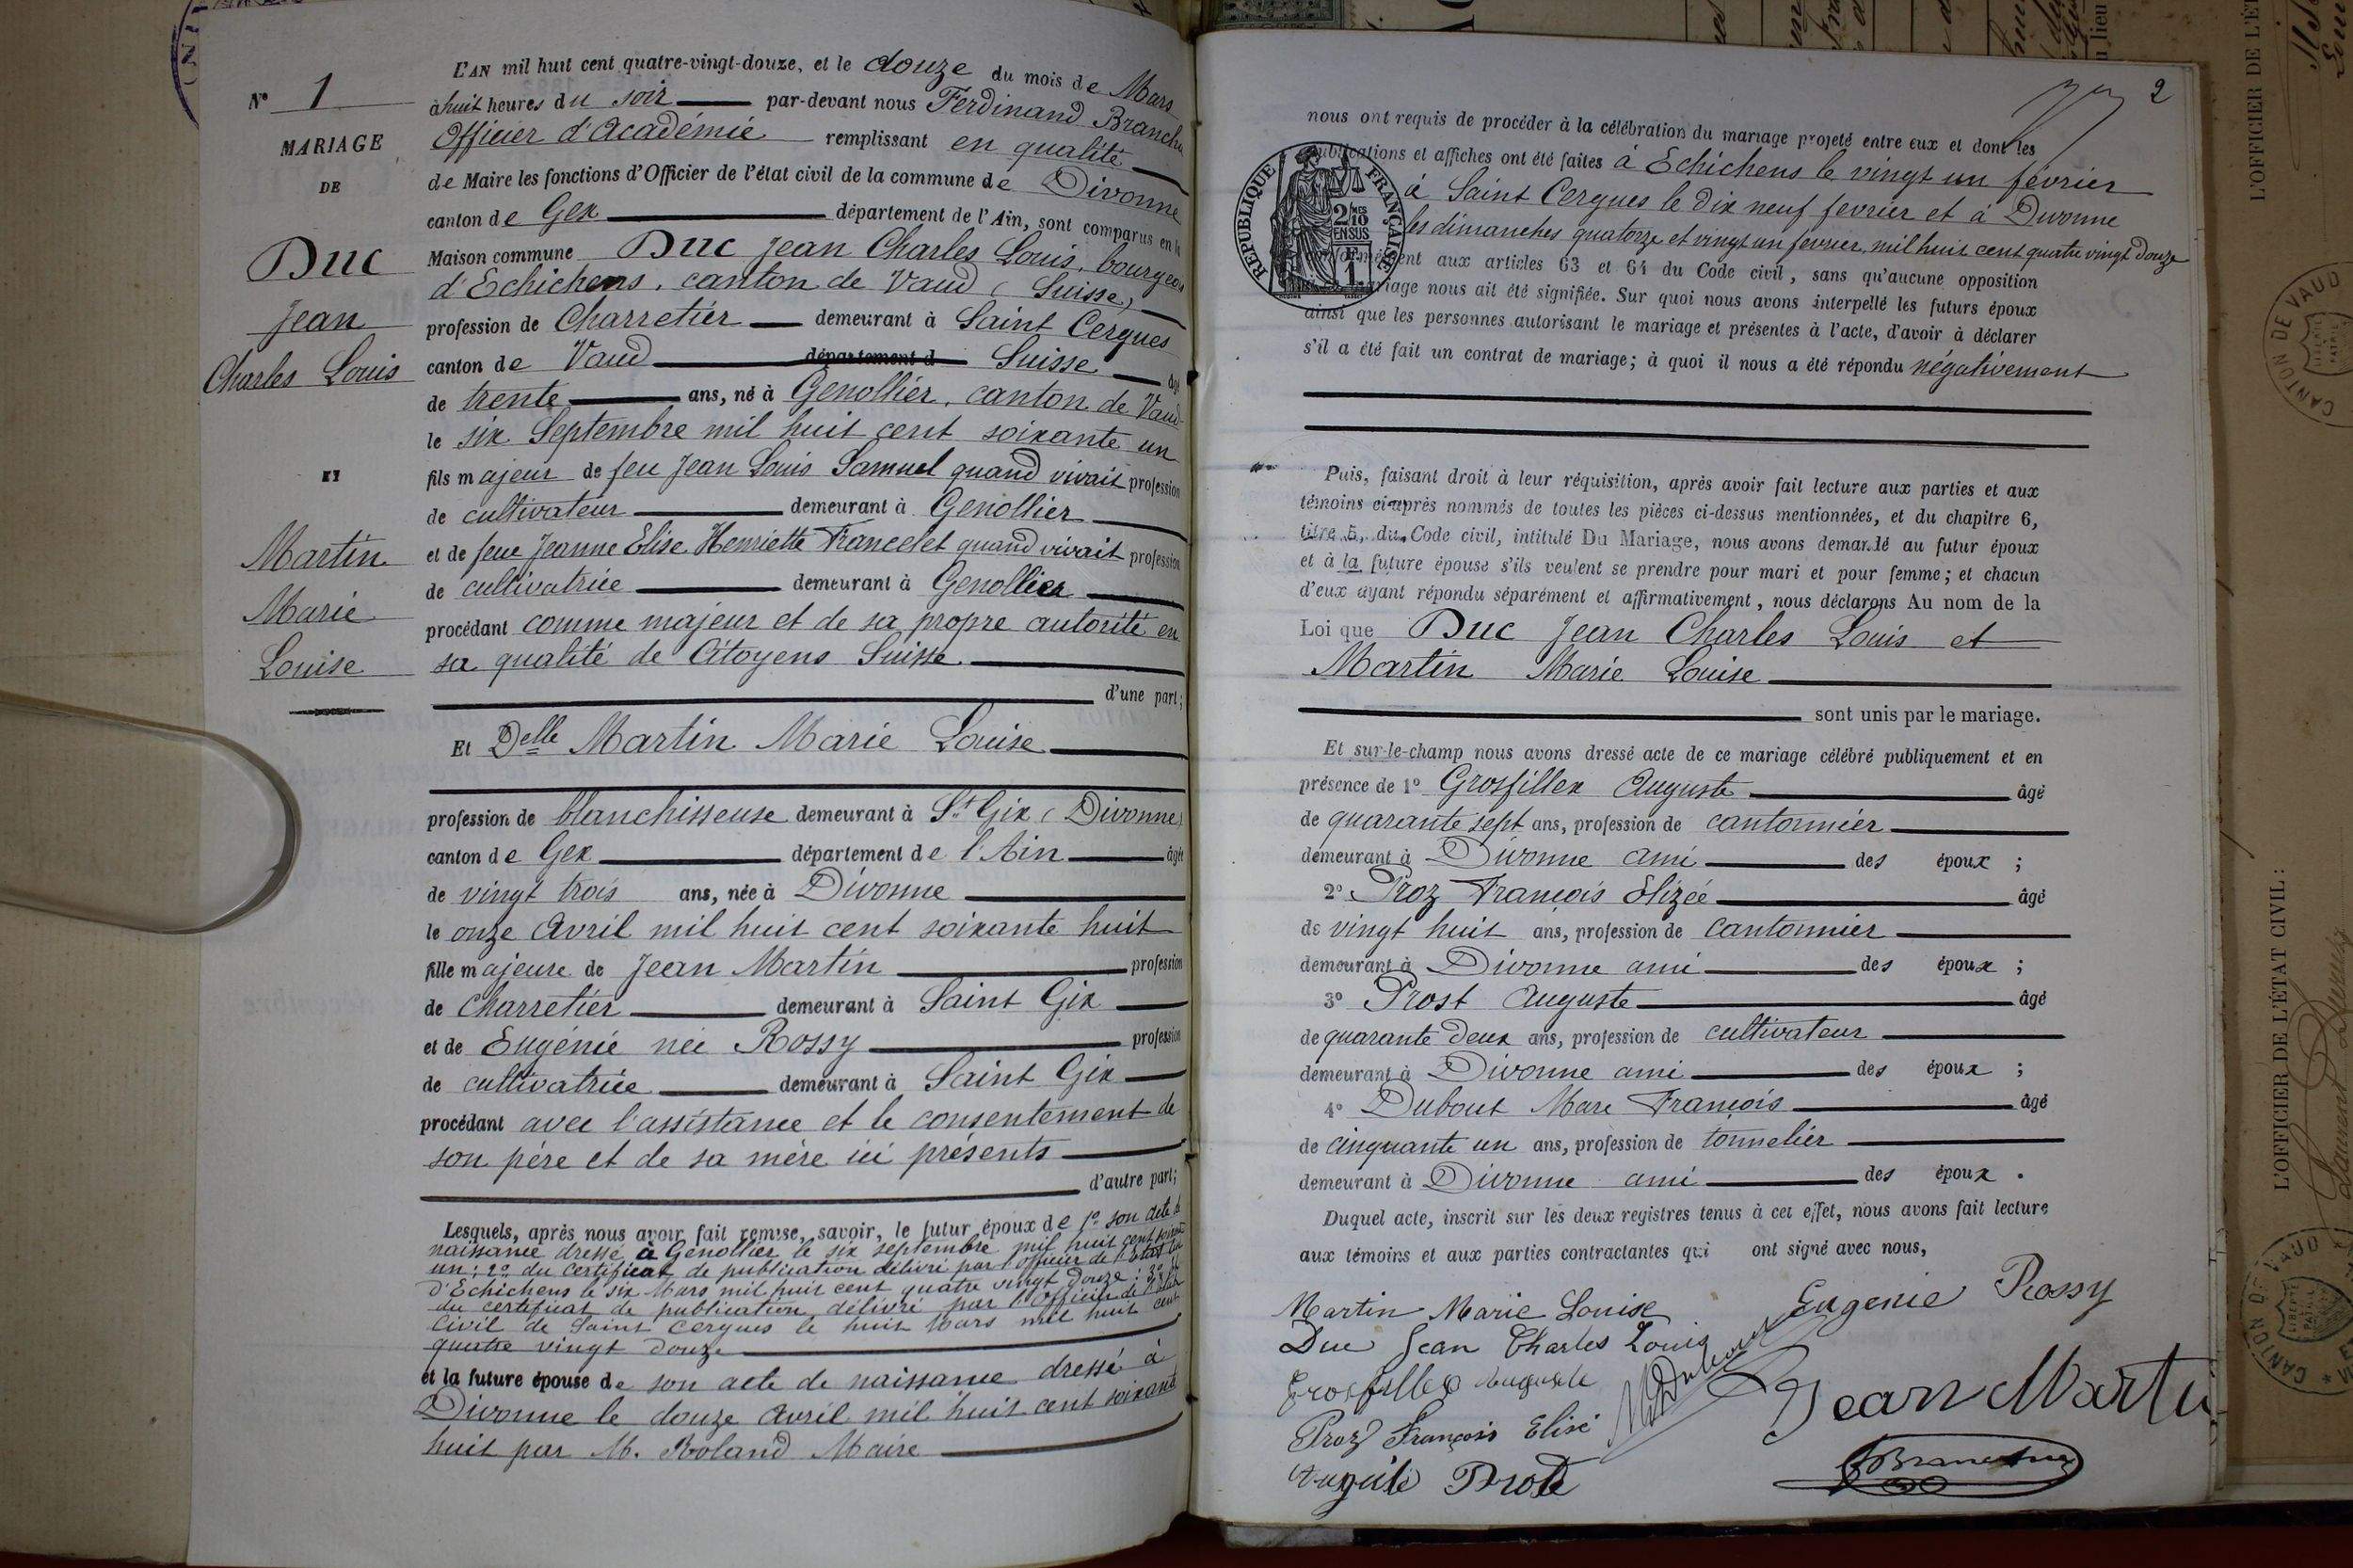 Nº 1
MARIAGE
DE
Duc
Jean
Charles Louis
ET
Martin
Marie
Louise
L'AN mil huit cent quatre-vingt-douze, et le douze du mois de Mars
à huit heures du soir par-devant nous Ferdinand Branchu
Officier d'Académie remplissant en qualité
de Maire les fonctions d'Officier de l'état civil de la commune de Divonne
canton de Gex département de l'Ain, sont comparus en la
Maison commune Duc Jean Charles Louis, bourgeois
d'Echichens, canton de Vaud (Suisse)
profession de Charretier demeurant à Saint Cergues
canton de Vaud département d Suisse âgé
de trente ans, né à Genollier, canton de Vaud
le six Septembre mil huit cent soixante un
fils majeur de feu Jean Louis Samuel quand vivait profession
de cultivateur demeurant à Genollier
et de feue Jeanne Elise Henriette Francelet quand vivait profession
de cultivatrice demeurant à Genollier
procédant comme majeur et de sa propre autorité en
sa qualité de Citoyens Suisse.
d'une part;
Et Delle Martin Marie Louise
profession de blanchisseuse demeurant à St Gix (Divonne)
canton de Gex département de l'Ain âgée
de vingt trois ans, née à Divonne
le onze Avril mil huit cent soixante huit
fille majeure de Jean Martin profession
de Charretier demeurant à Saint Gix
et de Eugénie née Rossy profession
de cultivatrice demeurant à Saint Gix
procédant avec l'assistance et le consentement de
son père et de sa mère ici présents
d'autre part;
Lesquels, après nous avoir fait remise, savoir, le futur époux de 1º son acte de
naissance dressé à Genollier le six septembre mil huit cent soixante
un; 2º du certificat de publication délivré par l'officier de l'état civil
d'Echichens le six Mars mil huit cent quatre vingt douze; 3º
du certificat de publication délivré par l'Officier de l'état
civil de Saint Cergues le huit Mars mil huit cent
quatre vingt douze
et la future épouse de son acte de naissance dressé à
Divonne le douze Avril mil huit cent soixante
huit par M. Roland Maire
2
nous ont requis de procéder à la célébration du mariage projeté entre eux et dont les
publications et affiches ont été faites à Echichens le vingt un février
à Saint Cergues le dix neuf fevrier et à Divonne
les dimanches quatorze et vingt un fevrier mil huit cent quatre vingt douze
conformément aux articles 63 et 64 du Code civil, sans qu'aucune opposition
mariage nous ait été signifiée. Sur quoi nous avons interpellé les futurs époux
ainsi que les personnes autorisant le mariage et présentes à l'acte, d'avoir à déclarer
s'il a été fait un contrat de mariage; à quoi il nous a été répondu négativement
RÉPUBLIQUE FRANÇAISE
2/10 MES
EN SUS
F 1
Puis, faisant droit à leur réquisition, après avoir fait lecture aux parties et aux
témoins ci-après nommés de toutes les pièces ci-dessus mentionnées, et du chapitre 6,
titre 5, du Code civil, intitulé Du Mariage, nous avons demandé au futur époux
et à la future épouse s'ils veulent se prendre pour mari et pour femme; et chacun
d'eux ayant répondu séparément et affirmativement, nous déclarons Au nom de la
Loi que Duc Jean Charles Louis et
Martin Marie Louise
sont unis par le mariage.
Et sur-le-champ nous avons dressé acte de ce mariage célébré publiquement et en
présence de 1º Grosfillex Auguste âgé
de quarante sept ans, profession de cantonnier
demeurant à Divonne ami des époux ;
2º Proz François Elizée âgé
de vingt huit ans, profession de cantonnier
demeurant à Divonne ami des époux ;
3º Prost Auguste âgé
de quarante deux ans, profession de cultivateur
demeurant à Divonne ami des époux ;
4º Dubout Marc François âgé
de cinquante un ans, profession de tonnelier
demeurant à Divonne ami des époux .
Duquel acte, inscrit sur les deux registres tenus à cet effet, nous avons fait lecture
aux témoins et aux parties contractantes qui ont signé avec nous,
Martin Marie Louise Eugenie Rossy
Duc Jean Charles Louis
Grosfillex Auguste
Jean Martin
Proz François Elisé
Branchu
L'OFFICIER DE L'ÉTAT CIVIL :
CANTON DE VAUD
LIBERTÉ
PATRIE